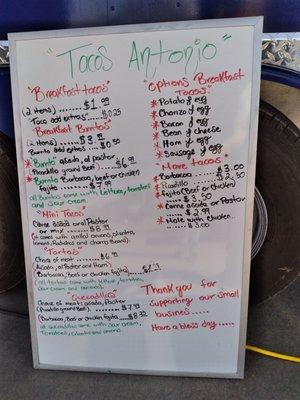 Tacos Antonio
"Breakfast tacos"
(2 items) ........ $1.99
Taco add extras ...... $0.25
"Breakfast Burritos"
(2 items) ..... $3.
Burrito add extras ... $0.50
*Burrito asada, al pastor
Picadillo ground Beef) ...... $6.99
*Burrito Barbacoa, beef or chicken
fajita ...... $7.99
all Burritos come with Lettuce, tomatoes
and sour cream.
"Mini Tacos"
Carne asada al Pastor
or mix
come with grilled onions, cilantro,
"Tortas"
Choice of meat ...... $6.
(Asada, al Pastor and Ham)
(Barbacoa, Beef or chicken fajita)
all tortas come with lettuce, tomatoes,
sour cream and
"Quesadillas"
Choice of meat: asada, Pastor
(Picadillo ground Beef) ...... $7.99
(Barbacoa, Beef or chicken fajita .... $8.
all quesadillas come with sour cream,
Tomatoes, cilantro and onions.
"Options Breakfast
Tacos"
*Potato & egg
*Chorizo & egg
*Bacon & egg
*Bean & cheese
*Ham & egg
*Sausage & egg
"More tacos"
*Barbacoa ...... $3.00
*Picadillo ....... $2.50
*Fajita (Beef or chicken)
..... $3.50
*Carne asada or Pastor
..... $2.99
*Mole with chicken
..... $3.00
Thank you for
supporting our small
busines .....
Have a bless day .....